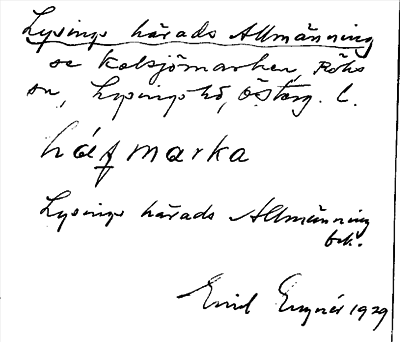 Lysings härads Allmänning
se Kolsjömarken, Röks
sn, Lysings hd, Östерg. l.
háfmarka
Lysings härads Allmänning
bek.
Emil 1929